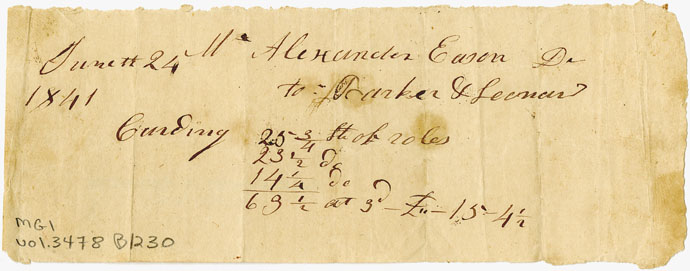 June th 24 Mr Alexander Eason Dr
1841 to Parker & Leonard
Carding 25 3/4 lb of roles
23 1/2 do
14 1/4 do
63 1/2 at 3d - £,, - 15 - 4 1/2
MG1
vol. 3478 B1230